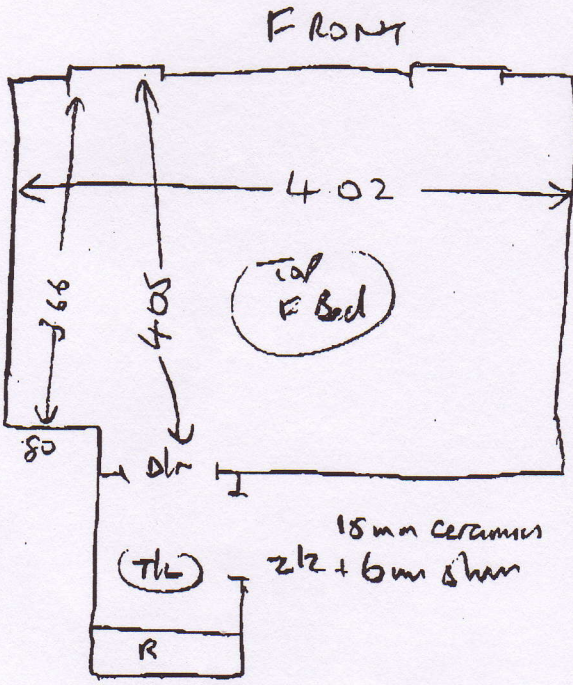 FRONT
4.02
366
405
Top
F Bed
80
D/r
T/L
15mm ceramics
2/2 + 6mm
R